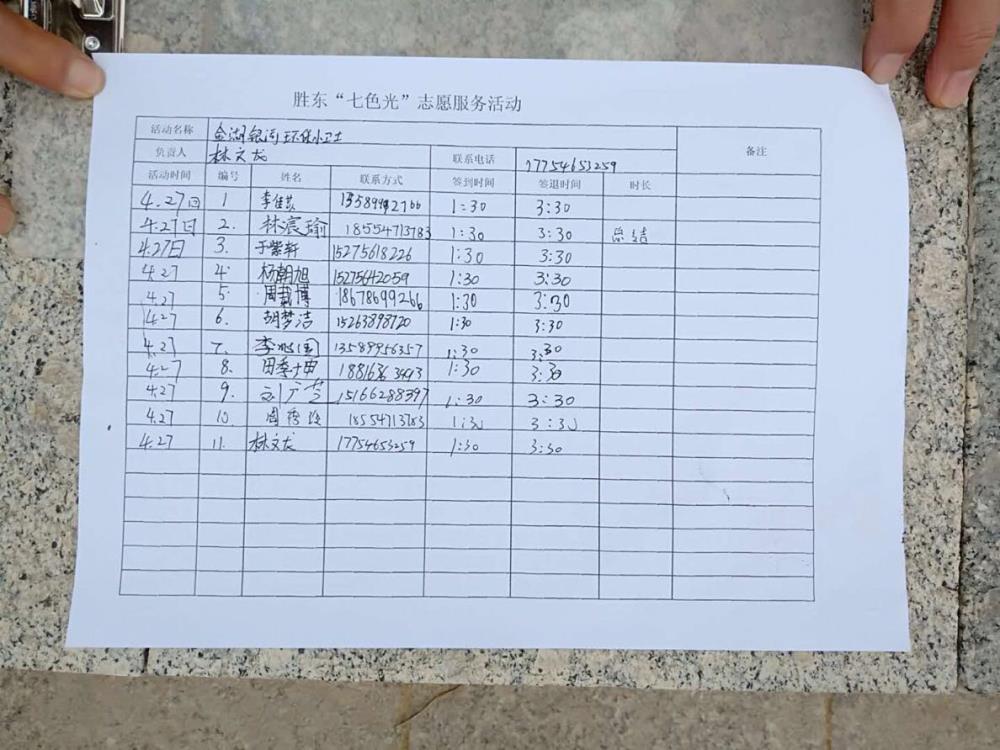 胜东“七色光”志愿服务活动
活动名称 金湖银河环保小卫士 备注
负责人 林文龙 联系电话 17754653259
活动时间 编号 姓名 联系方式 签到时间 签退时间 时长
4.27日 1 1:30 3:30
4.27日 2. 林宸瑜 18554713783 1:30 3:30 总结
4.27日 3. 于紫轩 15275618226 1:30 3:30
4.27 4. 杨朝旭 15275642059 1:30 3:30
4.27 5. 18678699266 1:30 3:30
4.27 6. 胡梦洁 15263898720 1:30 3:30
4.27 7. 13589956357 1:30 3:30
4.27 8. 1:30 3:30
4.27 9. 15166288397 1:30 3:30
4.27 10. 18554713783 1:30 3:30
4.27 11. 林文龙 17754653259 1:30 3:30